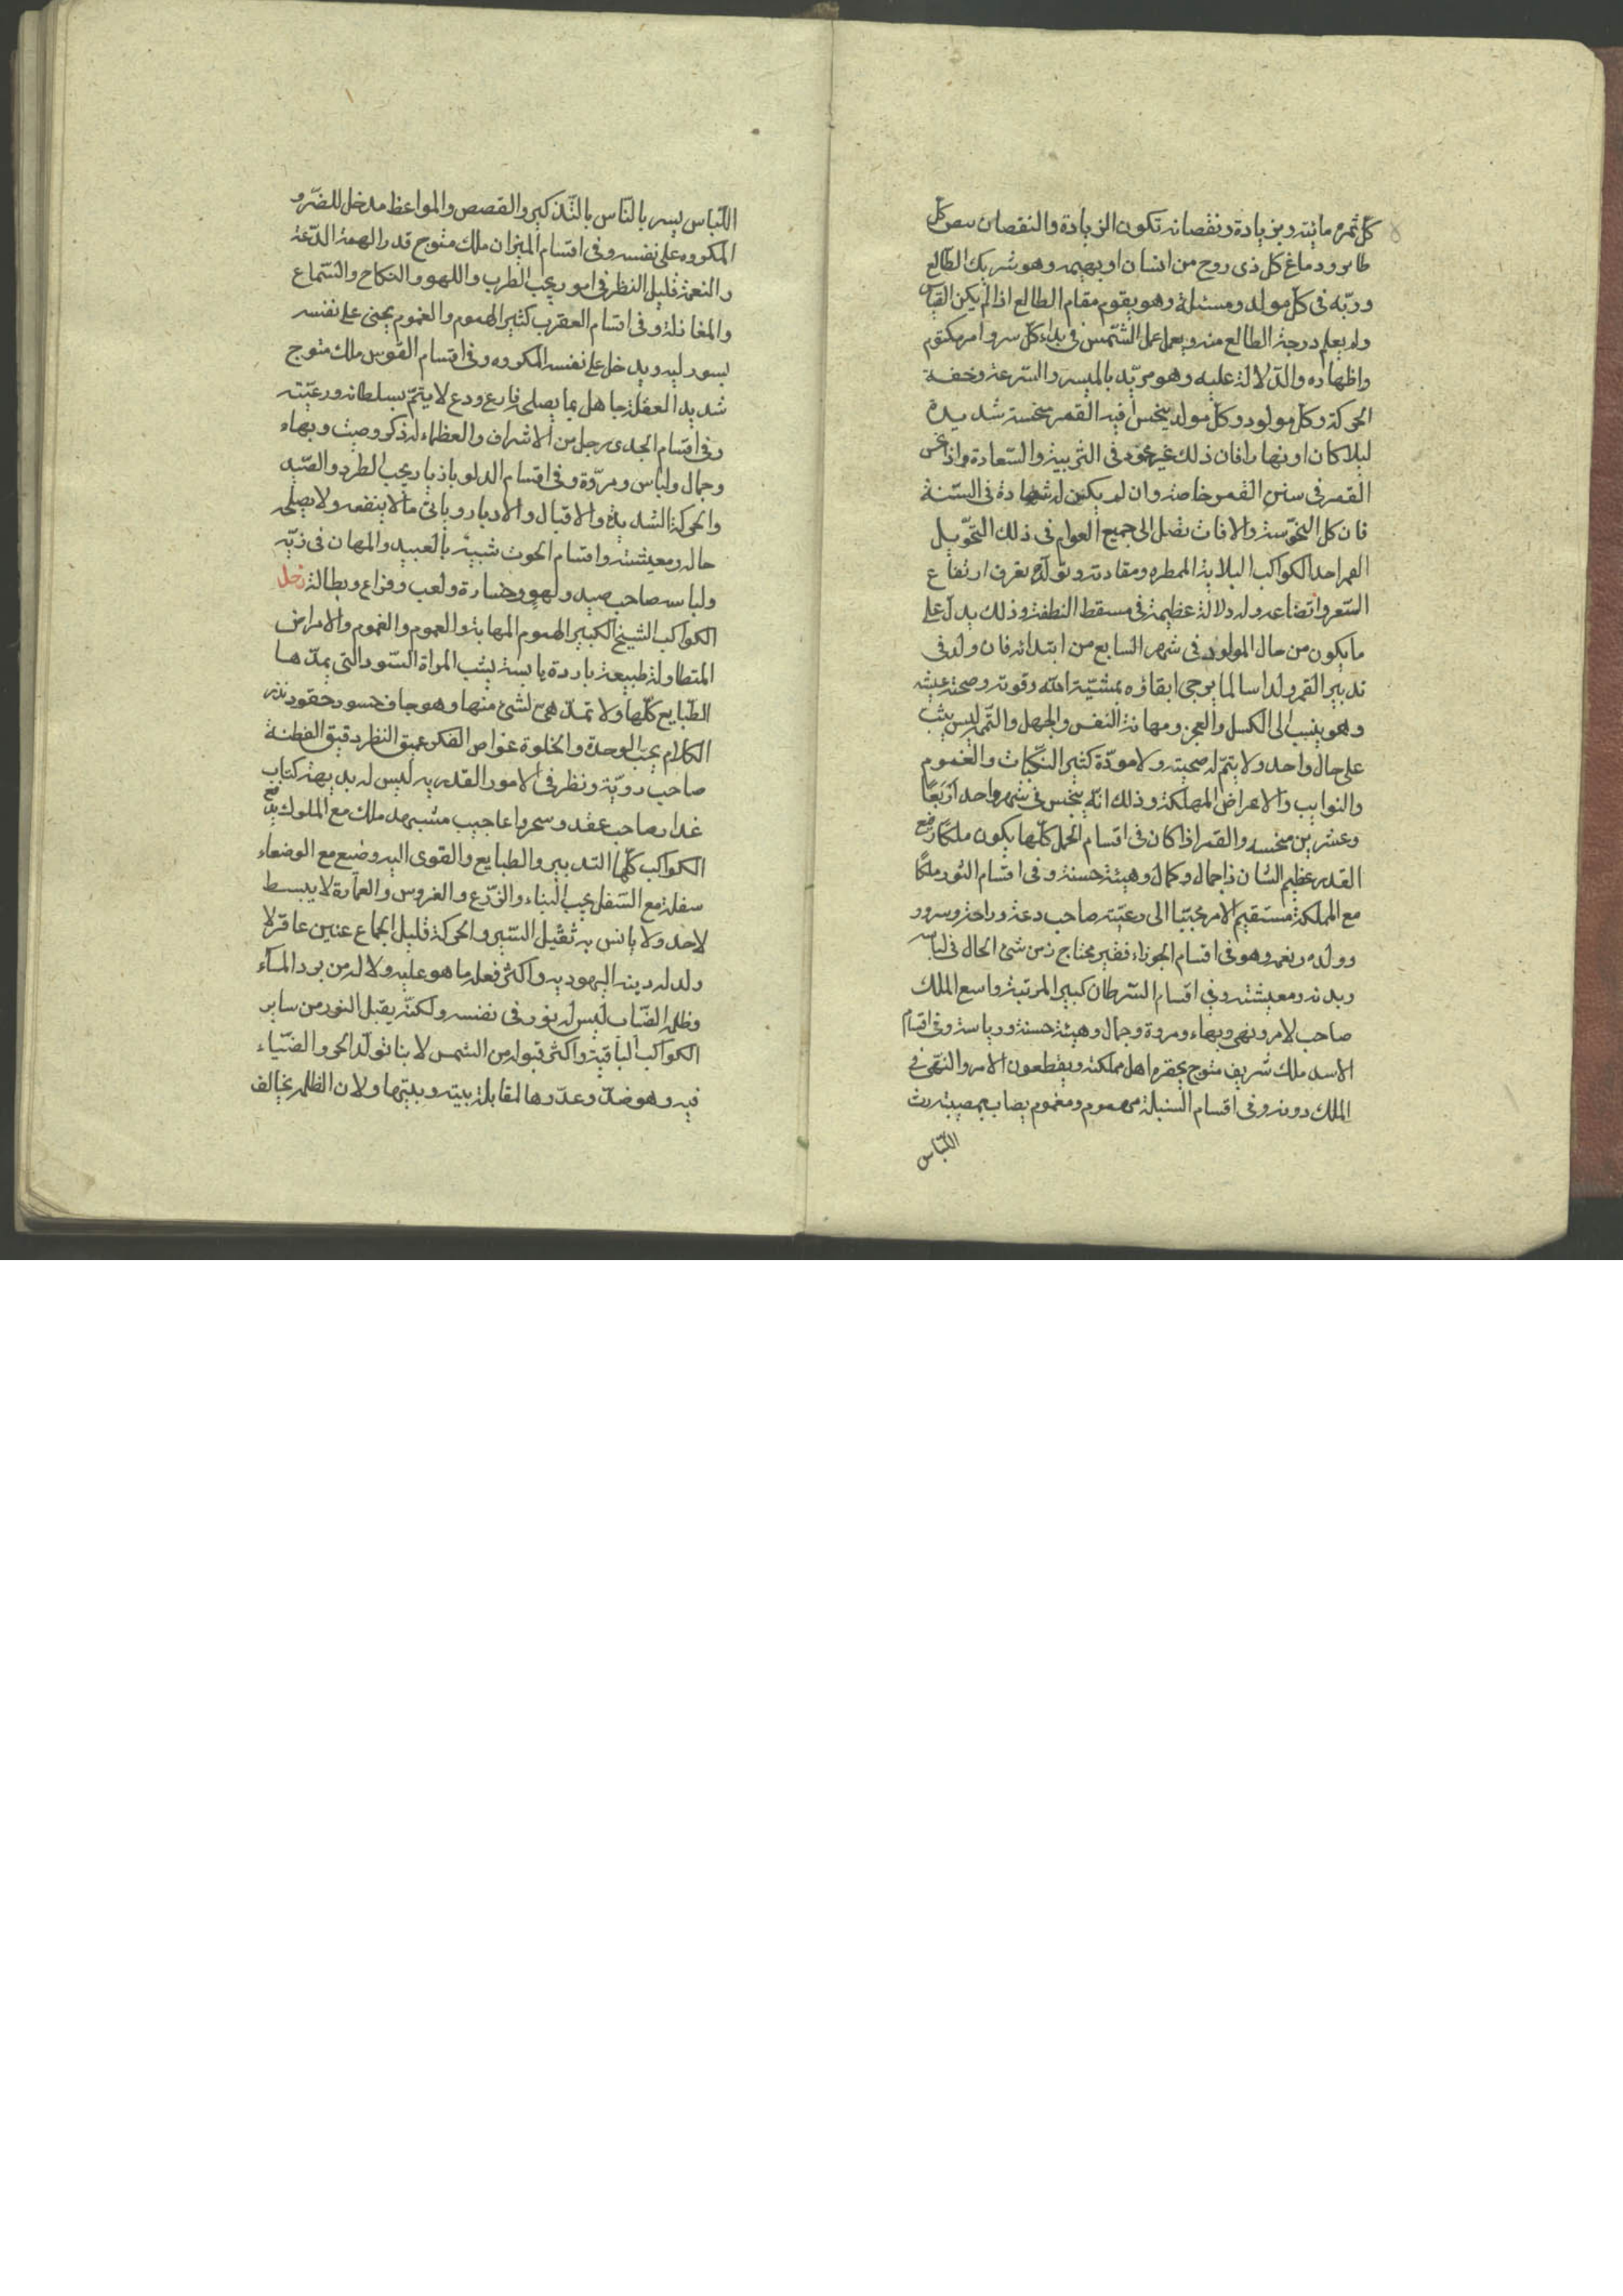 كلّ ثمره مائيته وبزيادة ونقصانه تكون الزيادة والنقصان كلّ
طاير ودماغ كل ذى روح من انسان او بهيمه وهو شريك الطالع
وربّه فى كلّ مولد ومسئلة وهو يقوم مقام الطالع اذا لم يكن
ولم يعلم درجة الطالع منه ويعمل عمل الشّمس فى بداء كلّ سر وامر مكتوم
واظهاره والدّلالة عليه وهو مريّد بالمسير والسّرعة وخفة
الحركة وكل مولود وكل مولد ينحس فيه القمر منحسة شديدة
ليلا كان او نهارا فان ذلك غير فى التربية والسّعادة واذا نحس
القمر فى سنى القمر خاصة وان لم يكن له شهادة فى السّنة
فان كل النحّوسة والافات تصل الى جميع العوام فى ذلك التحّويل
القمر احد الكواكب الممطره وتولّده يعرف ارتفاع
السّعر واتضاعه وله دلالة عظيمة فى مسقط النطفة وذلك يدلّ على
ما يكون من حال المولود فى شهر السّابع من ابتدائه فان ولد فى
تدبير القمر ولد سالما يرجى ابقاؤه بمشيّة الله وقوته وصحة عيشه
وهو ينسب الى الكسل والعجز ومهانة النفس والجهل ليس يثبت
على حال واحد ولا يتمّ له صحبته ولا مودّة كثير النكبات والغموم
والنوايب والاعراض المهلكة وذلك انّه ينحس فى شهر واحد اربعًا
وعشرين منحسه والقمر اذا كان فى اقسام الحمل كلّها يكون ملكًا رفيع
القدر عظيم الشان ذا جمال وكمال وهيئة حسنة وفى اقسام الثور ملكًا
مع المملكة مستقيم الامر محبّبا الى رعيّته صاحب دعة وراحة وسرور
وولده ونعمه وهو فى اقسام الجوزاء فقير محتاج زمن سئ الحال فى لباسه
وبدنه ومعيشته وفى اقسام السّرطان كبير المرتبة واسع الملك
صاحب لامر ونهى وبهاء ومروة وجمال وهيئة حسنة ورياسة وفى اقسام
الاسد ملك شريف متوج يحقره اهل مملكته ويقطعون الامر والنهى فى
الملك دونه وفى اقسام السنبلة مهموم ومغموم يصاب بمصيبته رث
اللّباس
اللّباس يسر بالنّاس بالتّذكير والقصص والمواعظ مدخل للضّر و
المكروه على نفسه وفى اقسام الميزان ملك متوج قدر الهمة الدّعة
والنعمة قليل النظر فى امور يحب الطرب واللهو والنكاح والسّماع
والمغازلة وفى اقسام العقرب كثير الهموم والغموم يجنى على نفسه
ويدخل على نفسه المكروه وفى اقسام القوس ملك متوج
شديد العقلة جاهل بما يصلى فارع ودع لا يتمّ بسلطانه ورعيّته
وفى اقسام الجدى رجل من الاشراف والعظماء له ذكر وصيت وبهاء
وجمال ولباس ومروّة وفى اقسام الدلو باذيار يحب الطرد والصّيد
والحركة الشديدة والاقبال والادبار وياتى مالا ينفعه ولا يصلى
حاله ومعيشته واقسام الحوت شبيه بالعبيد والمهان فى زيّه
ولباسه صاحب صيد ولهو وخسارة ولعب وفراغ وبطالة زحل
الكواكب الشيخ الكبير الهموم المهابة والهموم والغموم والامراض
المتطاولة طبيعة باردة يابسة يشب المراة السّود التى يمدّها
الطّبايع كلّها ولا تمدّ هى لشئ منها وهو جاف حسود حقود نزر
الكلام يحب الوحدة والخلوة غواص الفكر عميق النظر دقيق الفطنة
صاحب رويّة ونظر فى الامور القدريه ليس له بديهة كتاب
غدار صاحب عقد وسحر واعاجيب ملك مع الملوك
الكواكب كلّها التدبير والطبايع والقوى اليه وضيع مع الوضعاء
سفلة مع السّفل يحب البناء والزّرع والغروس والعمارة لا يبسط
لاحد ولا يانس به ثقيل السّير والحركة قليل الجماع عنين عاقر لا
ولد له دينه اليهوديه واكثر فعله ما هو عليه ولا له من برد الماء
وظلمه ليس له نور فى نفسه ولكنّه يقبل النور من ساير
الكواكب الباقية واكثر قبوله من الشمس لا بنا تولّد الحى والضّياء
فيه وهو ضدّ وعدّوها لمقابلة بيته وبيتها ولان الظلم يخالف